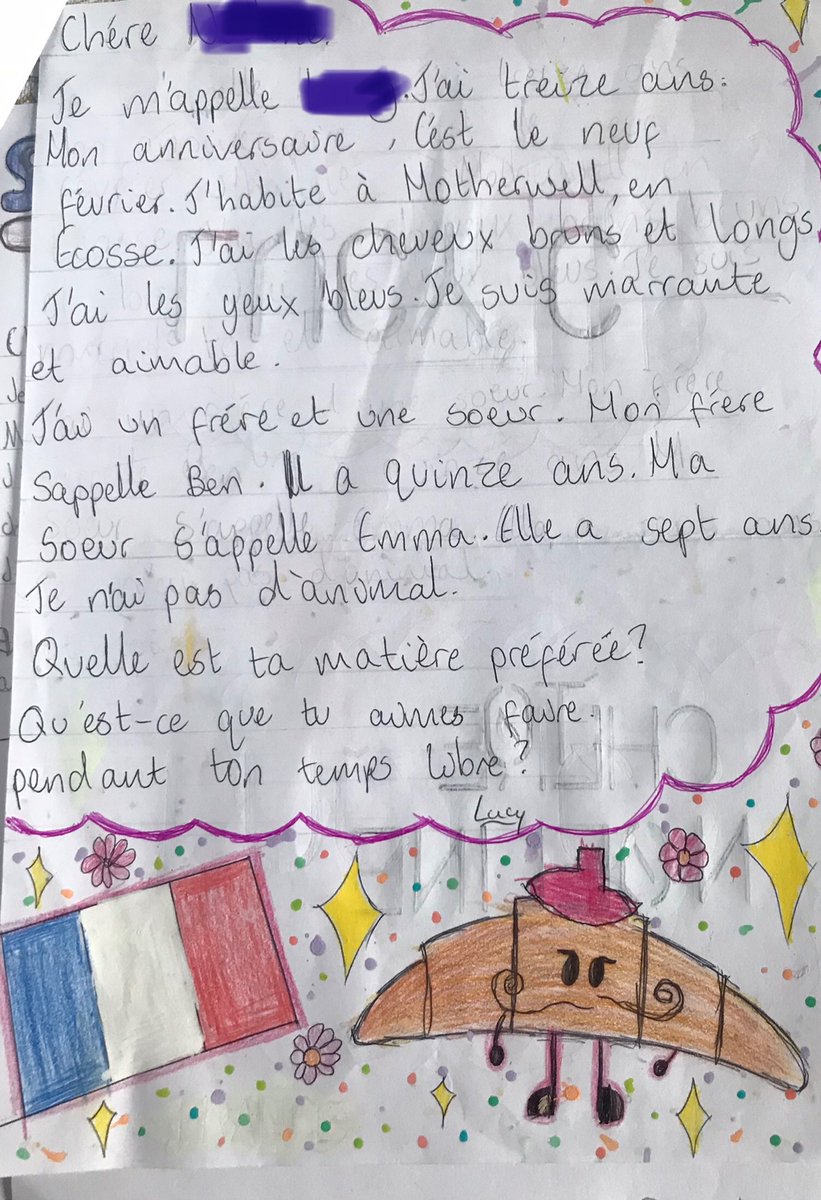 Chére
Je m'appelle . J'ai treize ans.
Mon anniversaire, C'est le neuf
février. J'habite à Motherwell, en
Écosse. J'ai les cheveux bruns et longs
J'ai les yeux bleus. Je suis marrante
et aimable.
J'ai un frére et une soeur. Mon frére
S'appelle Ben. Il a quinze ans. Ma
Soeur S'appelle Emma. Elle a sept ans.
Je n'ai pas d'animal.
Quelle est ta matière préférée?
Qu'est-ce que tu aimes faire
pendant ton temps libre?
Lucy